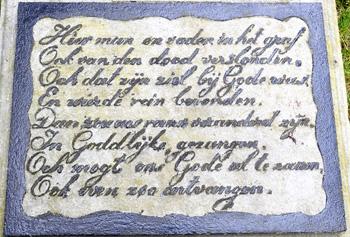 Hier man en vader in het graf
Ook van den dood verslonden.
Och dat zijn ziel bij Gode was
En wierde rein bevonden.
Dan zou ons rouw veranderd zijn
In Goddlijke gezangen
Och mogt ons Gode al te zamen
Ook even zoo ontvangen.